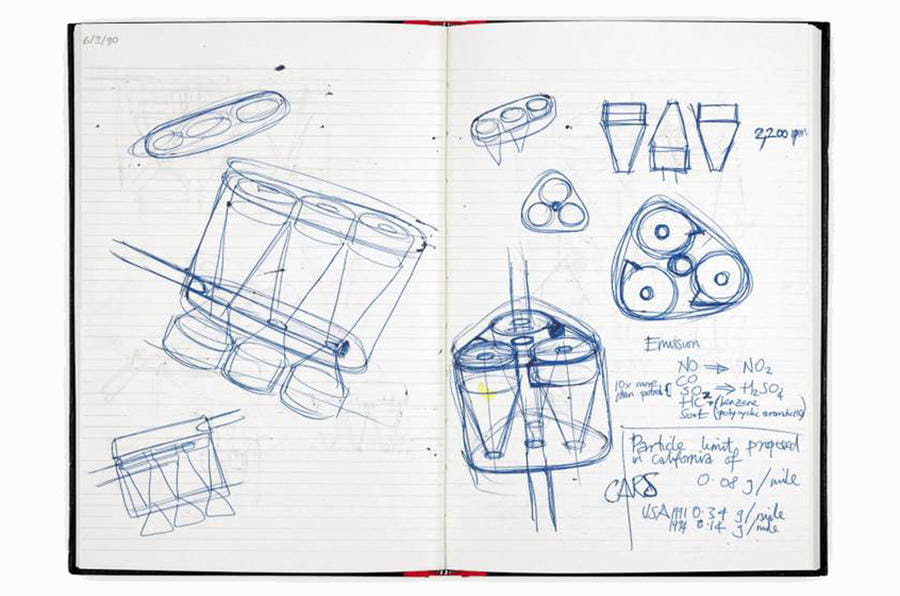 6/3/90
2,200 rpm
Emission
NO ⇒ NO2
CO
10x more
than petrol {
SO2 ⇒ H2SO4
HC + (benzene
Soot (polycyclic aromatics)
Particle limit proposed
in California of
0.08 g/mile
CARS
USA 1991 0.34 g/mile
1994 0.14 g/mile